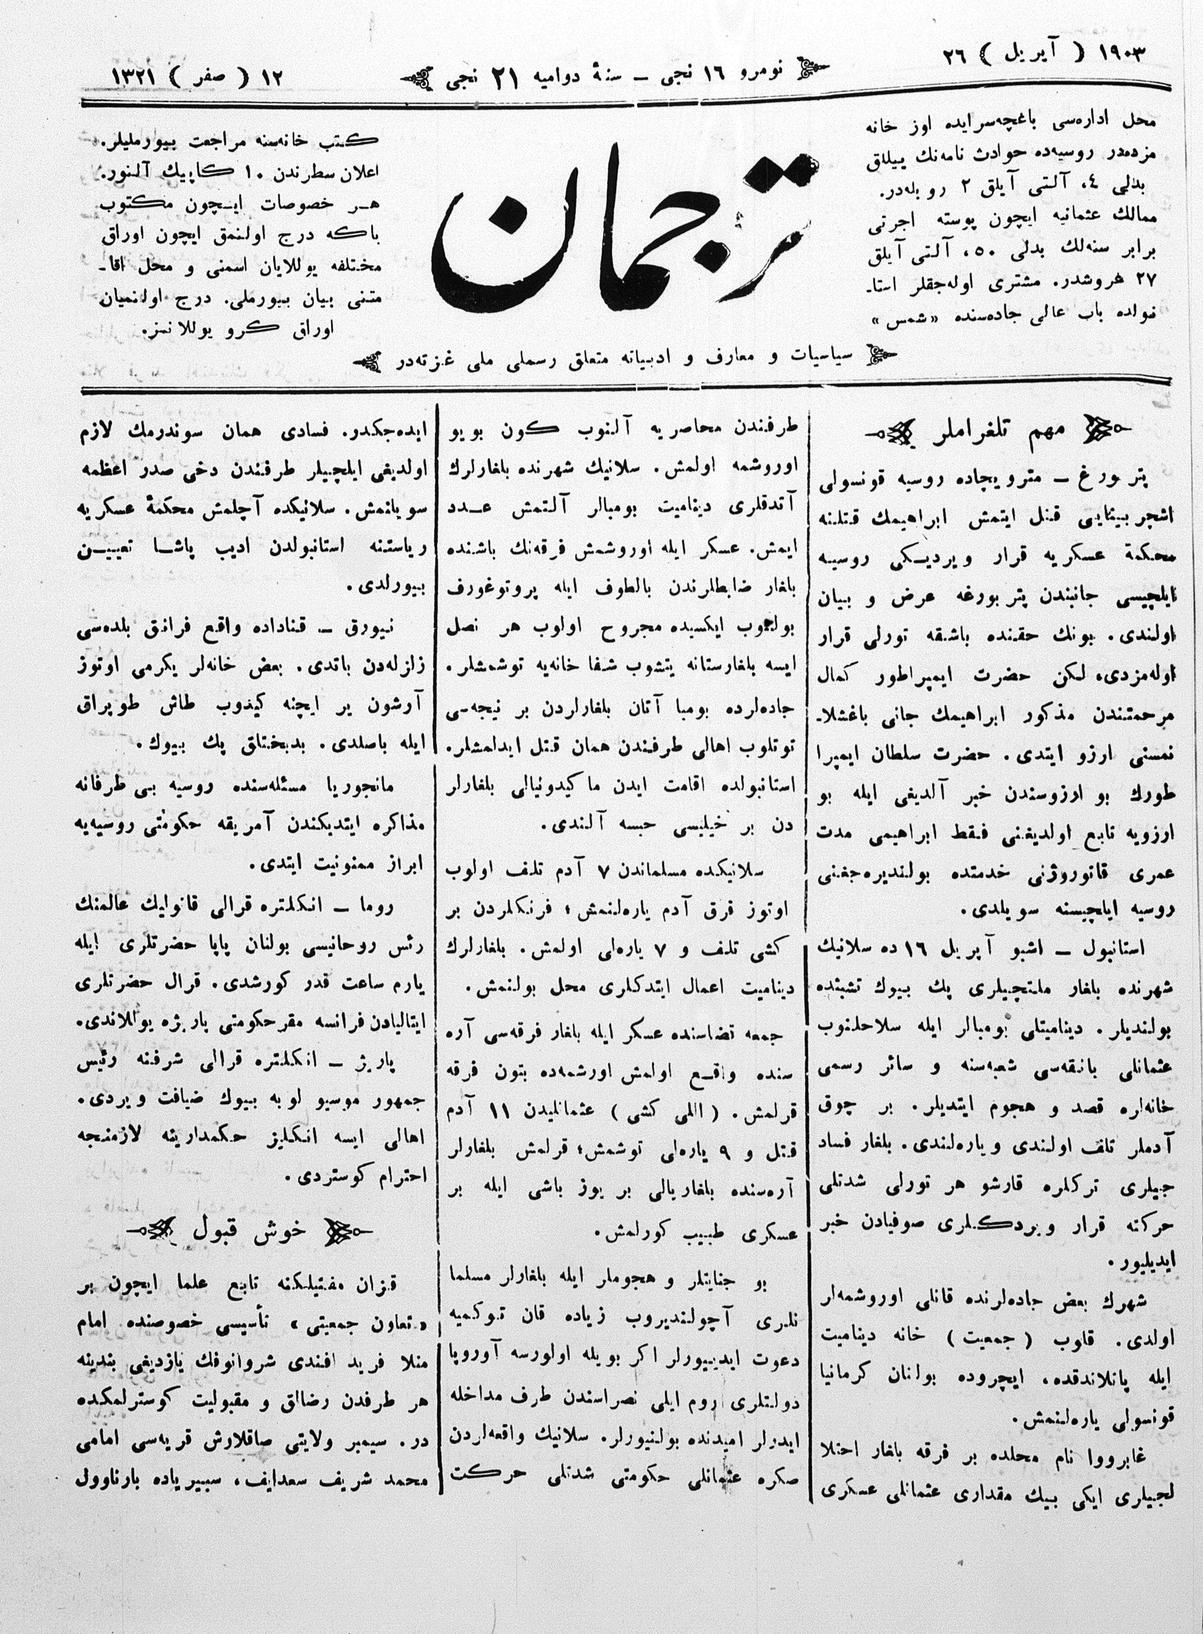 ١٩٠٣ ( آپریل ) ٢٦
نومرو ١٦ نجی ــ سنۀ دوامیه ٢١ نجی
١٢ ( صفر ) ١٣٢١
محل اداره‌سی باغچه‌سرایده اوز خانه
مزده‌در روسیه‌ده حوادث نامه‌نك ییللق
بدلی ٤، آلتی آیلق ٢ روبله‌در.
ممالك عثمانیه ایچون پوسته اجرتی
برابر سنه‌لك بدلی ٥٠، آلتی آیلق
٢٧ غروشدر. مشتری اوله‌جقلر استا۔
نبولده باب عالی جاده‌سنده «شمس»
كتب خانه‌سنه مراجعت بیورملیلر.
اعلان سطرندن ١٠ كاپیك آلنور.
هر خصوصات ایچون مكتوب
باكه درج اولنمق ایچون اوراق
مختلفه یوللایان اسمنی و محل اقا۔
متنی بیان بیورملی. درج اولنمیان
اوراق كرو یوللانمز.
ترجمان
سیاسیات و معارف و ادبیاته متعلق رسملی ملی غزته‌در
مهم تلغراملر
پتربورغ ــ متروویچاده روسیه قونسولی
اشچربینایی قتل ایتمش ابراهیمك قتلنه
محكمۀ عسكریه قرار ویردیكی روسیه
ایلچیسی جانبندن پتربورغه عرض و بیان
اولندی. بونك حقنده باشقه تورلی قرار
اوله‌مزدی، لكن حضرت ایمپراطور كمال
مرحمتندن مذكور ابراهیمك جانی باغشلا۔
نمسنی ارزو ایتدی. حضرت سلطان ایمپرا
طورك بو ارزوسندن خبر آلدیغی ایله بو
ارزویه تابع اولدیغنی فقط ابراهیمی مدت
عمری قاتوروژنی خدمتده بولندیره‌جغنی
روسیه ایلچیسنه سویلدی.
استانبول ــ اشبو آپریل ١٦ ده سلانیك
شهرنده بلغار ملتچیلری پك بیوك تشبثده
بولندیلر. دینامیتلی بومبالر ایله سلاحلنوب
عثمانلی بانقه‌سی شعبه‌سنه و سائر رسمی
خانه‌لره قصد و هجوم ایتدیلر. بر چوق
آدملر تلف اولندی و یاره‌لندی. بلغار فساد
جیلری تركلره قارشو هر تورلی شدتلی
حركته قرار ویردكلری صوفیادن خبر
ایدیلیور.
شهرك بعض جاده‌لرنده قانلی اوروشمه‌لر
اولدی. قلوب ( جمعیت ) خانه دینامیت
ایله پاتلاندقده، ایچروده بولنان كرمانیا
قونسولی یاره‌لنمش.
غابرووا نام محلده بر فرقه بلغار اختلا
لجیلری ایكی بیك مقداری عثمانلی عسكری
طرفندن محاصریه آلنوب كون بویو
اوروشمه اولمش. سلانیك شهرنده بلغارلرك
آتدقلری دینامیت بومبالر آلتمش عدد
ایمش. عسكر ایله اوروشمش فرقه‌نك باشنده
بلغار ضابطلرندن بالطوف ایله پروتوغورف
بولنوب ایكسیده مجروح اولوب هر نصل
ایسه بلغارستانه یتشوب شفا خانه‌یه توشمشلر.
جاده‌لرده بومبا آتان بلغارلردن بر نیجه‌سی
توتلوب اهالی طرفندن همان قتل ایدلمشلر.
استانبولده اقامت ایدن ماكیدونیالی بلغارلر
دن بر خیلیسی حبسه آلندی.
سلانیكده مسلماندن ٧ آدم تلف اولوب
اوتوز قرق آدم یاره‌لنمش؛ فرنكلردن بر
كشی تلف و ٧ یاره‌لی اولمش. بلغارلرك
دینامیت اعمال ایتدكلری محل بولنمش.
جمعه قضاسنده عسكر ایله بلغار فرقه‌سی آره
سنده واقع اولمش اورشمه‌ده بتون فرقه
قرلمش. ( اللی كشی ) عثمانلیدن ١١ آدم
قتل و ٩ یاره‌لی توشمش؛ قرلمش بلغارلر
آره‌سنده بلغاریالی بر یوز باشی ایله بر
عسكری طبیب كورلمش.
بو جنایتلر و هجوملر ایله بلغارلر مسلما
نلری آچولندیروب زیاده قان توكمیه
دعوت ایدییورلر اكر بویله اولورسه آوروپا
دولتلری روم ایلی نصراسندن طرف مداخله
ایدرلر امیدنده بولنیورلر. سلانیك واقعه‌لردن
صكره عثمانلی حكومتی شدتلی حركت
ایده‌جكدر. فسادی همان سوندرمك لازم
اولدیغی ایلچیلر طرفندن دخی صدر اعظمه
سویلنمش. سلانیكده آچلمش محكمۀ عسكریه
ریاستنه استانبولدن ادیب پاشا تعیین
بیورلدی.
نیورق ــ قناداده واقع فرانق بلده‌سی
زلزله‌دن باتدی. بعض خانه‌لر یكرمی اوتوز
آرشون یر ایچنه كیدوب طاش طوپراق
ایله باصلدی. بدبختلق پك بیوك.
مانجوریا مسئله‌سنده روسیه بی طرفانه
مذاكره ایتدیكندن آمریقه حكومتی روسیه‌یه
ابراز ممنونیت ایتدی.
روما ــ انكلتره قرالی قاتولیك عالمنك
رئس روحانیسی بولنان پاپا حضرتلری ایله
یارم ساعت قدر كورشدی. قرال حضرتلری
ایتالیادن فرانسه مقر حكومتی پاریژه یوللاندی.
پاریژ ــ انكلتره قرالی شرفنه رئیس
جمهور موسیو لوبه بیوك ضیافت ویردی.
اهالی ایسه انكلیز حكمدارینه لازمنجه
احترام كوستردی.
خوش قبول
قزان مفتیلكنه تابع علما ایچون بر
«تعاون جمعیتی» تأسیسی خصوصنده امام
منلا فرید افندی شروانوفك یازدیغی بندینه
هر طرفدن رضالق و مقبولیت كوسترلمكده
در. سیمبر ولایتی صاقلارش قریه‌سی امامی
محمد شریف سعدایف، سیبیریاده بارناوول